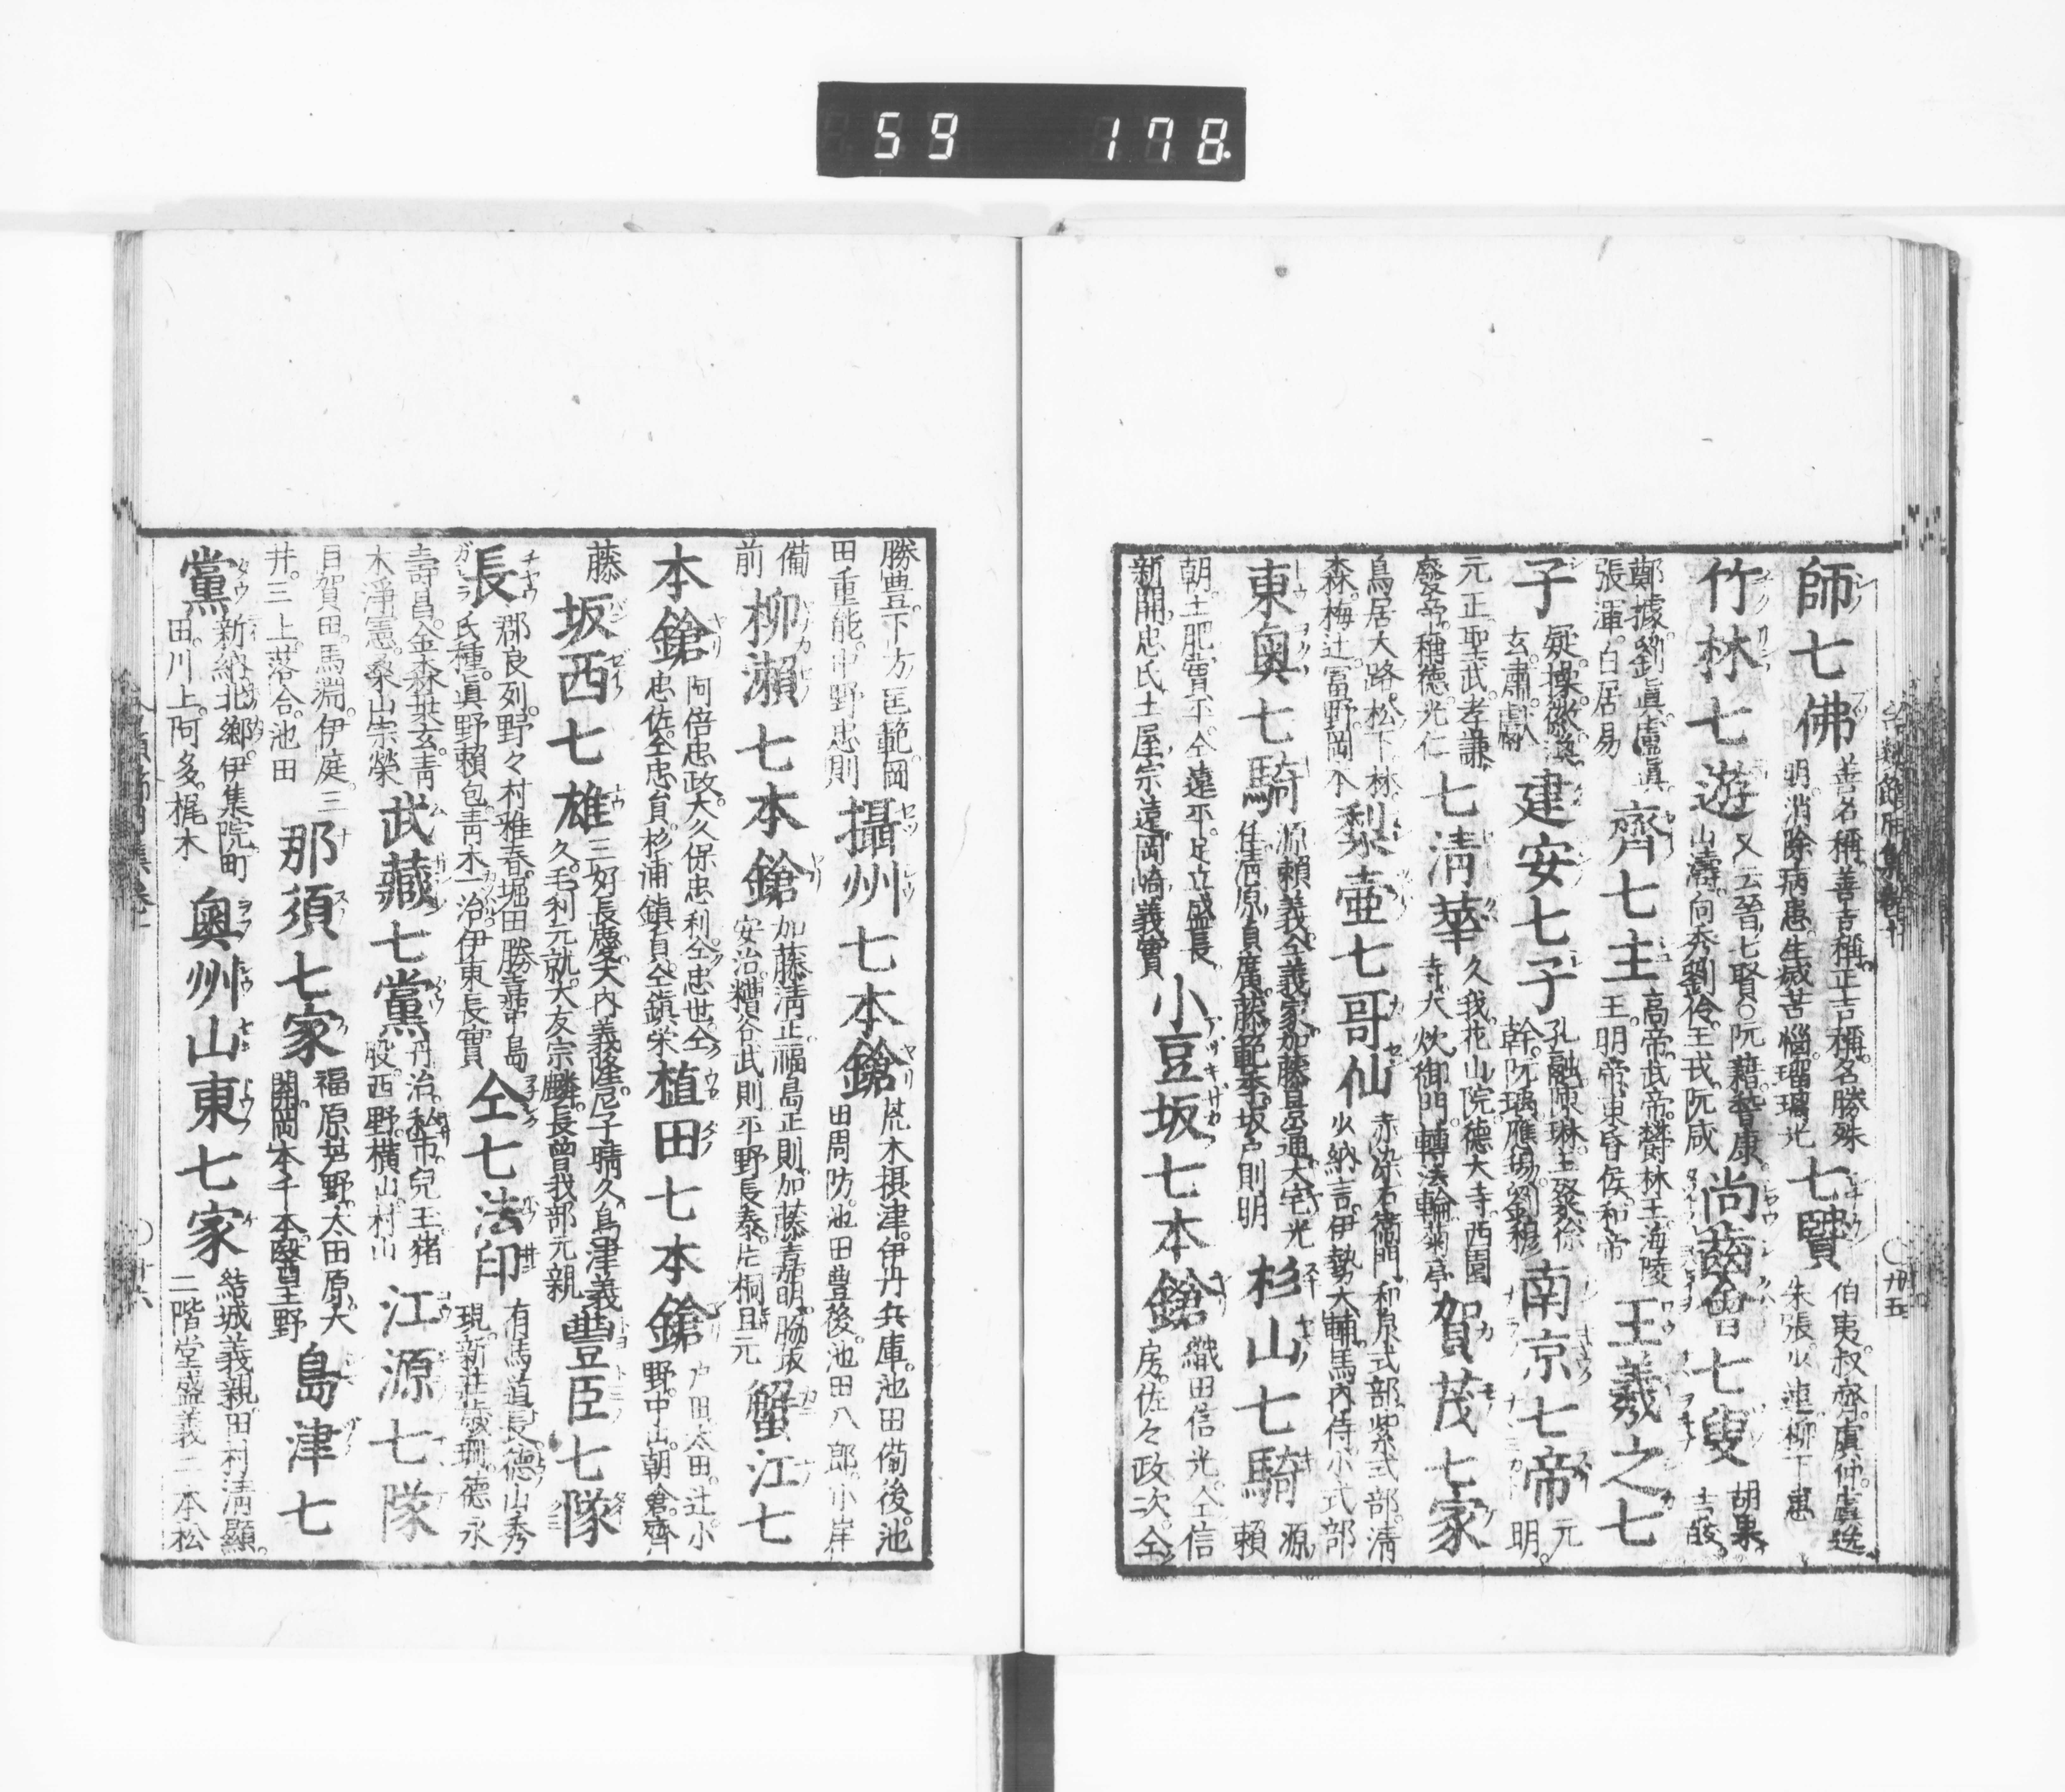 59 178
師七佛 善名稱善吉稱正吉稱。名勝殊
明。消除病患。生滅苦惱。瑠璃光 七賢 伯夷。叔齊。虞仲。夷逸。
朱張。少連。柳下惠
竹林七遊 又云晉七賢。阮藉。嵆康。
山濤。向秀。劉伶。王戎。阮咸 尚齒會七叟 胡杲。
吉皎。
鄭據。劉眞。盧眞。
張渾。白居易 齊七主 高帝。武帝。欝林王。海陵
王。明帝。東昏侯。和帝 王羲之七
子 凝。操。徽。渙。
玄。肅。獻 建安七子 孔融。陳琳。王粲。徐
幹。阮瑀。應瑒。劉楨 南京七帝 元
明。
元正。聖武。孝謙。
廢帝。稱德。光仁 七淸華 久我。花山院。德大寺。西園
寺。大炊御門。轉法輪。菊亭 賀茂七家
鳥居大路。松下。林。
森。梅辻。冨野。岡本 梨壷七哥仙 赤染右衞門。和泉式部。紫式部。淸
少納言。伊勢大輔。馬內侍。小式部
東奥七騎 源賴義。仝義家。加藤景通。大宅光
任。淸原貞廣。藤範季。坂戶則明 杉山七騎 源
賴
朝。土肥實平。仝遠平。足立盛長。
新開忠氏。土屋宗遠。岡崎義實 小豆坂七本鎗 織田信光。仝信
房。佐々政次。仝
勝豊。下方匡範。岡
田重能。中野忠則 攝州七本鎗 荒木摂津。伊丹兵庫。池田備後。池
田周防。池田豊後。池田八郎。小岸
備
前 柳瀬七本鎗 加藤淸正。福島正則。加藤嘉明。脇坂
安治。糟谷武則。平野長泰。片桐且元 蟹江七
本鎗 阿倍忠政。大久保忠利。仝忠世。仝
忠佐。仝忠員。杉浦鎭貞。仝鎭栄 植田七本鎗 戶田。太田。辻。小
野。中山。朝倉。齊
藤 坂西七雄 三好長慶。大內義隆。尼子晴久。島津義
久。毛利元就。大友宗麟。長曾我部元親 豊臣七隊
長 郡良列。野々村雅春。堀田勝嘉。中島
氏種。眞野賴包。靑木一治。伊東長實 仝七法印 有馬道長。德山秀
現。新庄。德永
壽昌。金森。玄靑
木淨憲。桑山宗榮 武藏七黨 丹治。私市。兒玉。猪
股。西野。横山。村山 江源七隊
目賀田。馬淵。伊庭。三
井。三上。落合。池田 那須七家 福原。芦野。太田原。大
関。岡本。千本。塩野 島津七
黨 新納。北鄉。伊集院。町
田。川上。阿多。梶木 奥州山東七家 結城義親。田村淸顯。
二階堂盛義。二本松